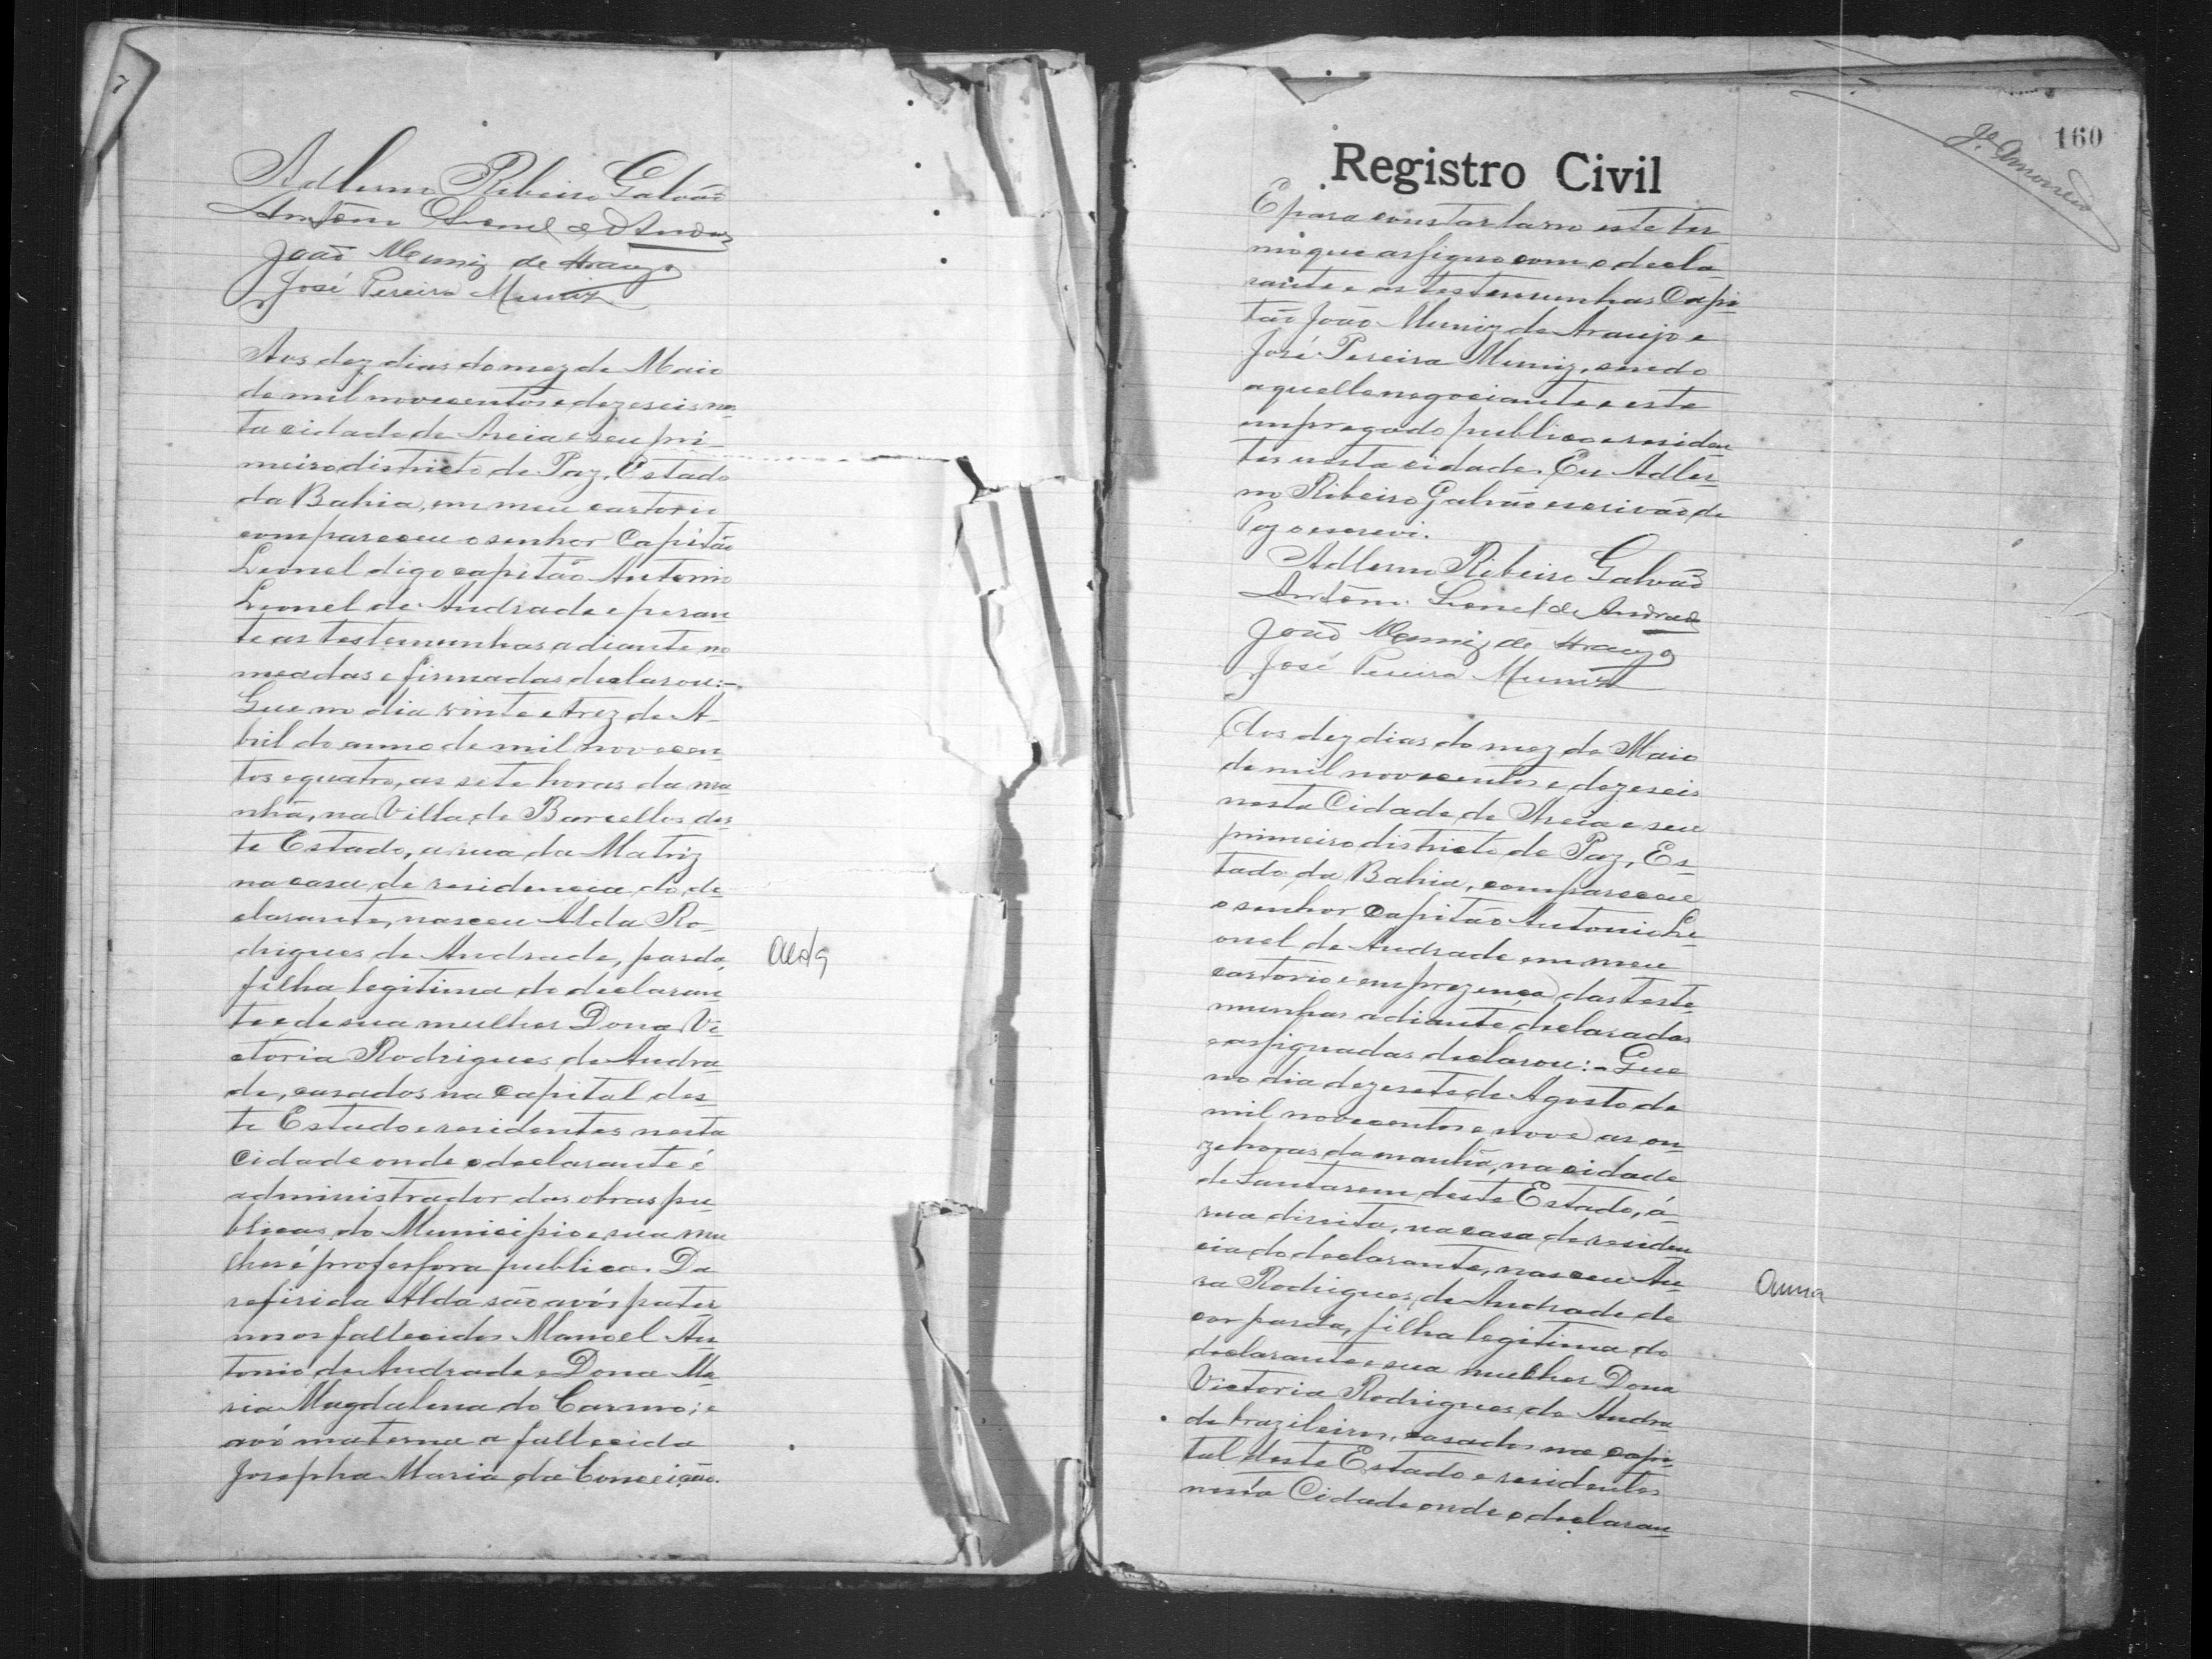 7
Adlerno Ribeiro Galvão
Antonio Leonel de Andrade
João Muniz de Araujo
José Pereira Muniz
Aos dez dias do mez de Maio
de mil novecentos e dezeseis nes
ta cidade de Areia e seu pri-
meiro districto de Paz, Estado
da Bahia, em meu cartorio
compareceu o senhor Capitão
Leonel digo capitão Antonio
Leonel de Andrade e peran
te as testemunhas adiante no
meadas e firmadas declarou:-
Que no dia vinte e trez de A-
bril do anno de mil novecen
tos e quatro, as sete horas da ma
nhã, na Villa de Barcellos des
te Estado, a rua da Matriz
na casa de residencia do de
clarante, nasceu Alda Ro-
drigues de Andrade, parda,
Alda
filha legitima do declaran
te e de sua mulher Dona Vi
ctoria Rodrigues de Andra
de, casados na Capital des
te Estado e residentes nesta
Cidade onde o declarante é
administrador das obras pu
blicas do Municipio e sua mu
lher é professora publica. Da
referida Alda são avós pater
nos os fallecidos Manoel An
tonio de Andrade e Dona Ma
ria Magdalena do Carmo; e
avó materna a fallecida
Josepha Maria da Conceição.
160
Registro Civil
E para constar lavro este ter
mo que assigno com o decla
rante e as testemunhas Capi
tão João Muniz de Araujo e
José Pereira Muniz, sendo
aquelle negociante e este
empregado publico e residen
tes nesta cidade. Eu Adler
no Ribeiro Galvão escrivão de
Paz o escrevi.
Adlerno Ribeiro Galvão
Antonio Leonel de Andrade
João Muniz de Araujo
José Pereira Muniz
Aos dez dias do mez de Maio
de mil novecentos e dezeseis
nesta Cidade de Areia e seu
primeiro districto de Paz, Es-
tado da Bahia, compareceu
o senhor Capitão Antonio Le
onel de Andrade em meu
cartorio e em prezença das teste
munhas adiante declaradas
e assignadas declarou:- Que
no dia dezesete de Agosto de
mil novecentos e nove as on
ze horas da manhã, na cidade
de Santarem deste Estado, á
rua direita, na casa de residen
cia do declarante, nasceu An
na Rodrigues de Andrade de
Anna
cor parda, filha legitima do
declarante e sua mulher Dona
Victoria Rodrigues de Andra
de brazileiros, casados na capi
tal deste Estado e residentes
nesta Cidade onde o declaran